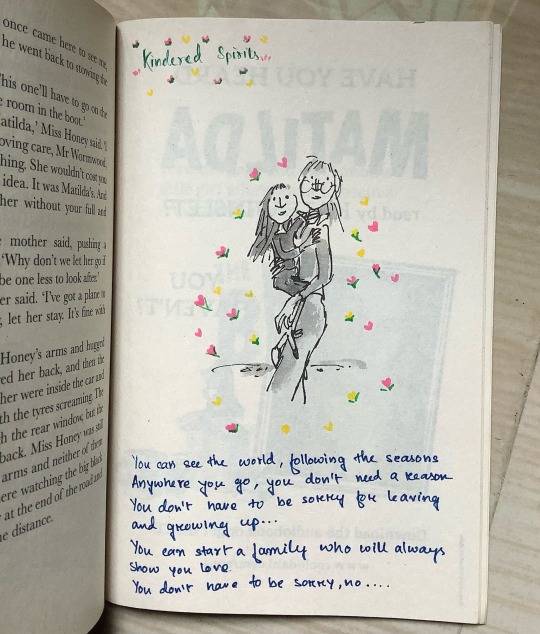 once came here to see me,
he went back to stowing the
this one'll have to go on the
room in the boot.'
atilda,' Miss Honey said. 'I
oving care, Mr Wormwood,
thing. She wouldn't cost you
idea. It was Matilda's. And
her without your full and
mother said, pushing a
'Why don't we let her go if
be one less to look after.'
er said. 'I've got a plane to
, let her stay. It's fine with
Honey's arms and hugged
ed her back, and then the
her were inside the car and
th the tyres screaming. The
h the rear window, but the
back. Miss Honey was still
arms and neither of them
ere watching the big black
at the end of the road and
e distance.
Kindered Spirits
HAVE YOU HEARD
MATILDA
read by
YOU
You can see the world, following the seasons
Anywhere you go, you don't need a reason
You don't have to be sorry for leaving
and growing up...
You can start a family who will always
show you love
You don't have to be sorry, no ....